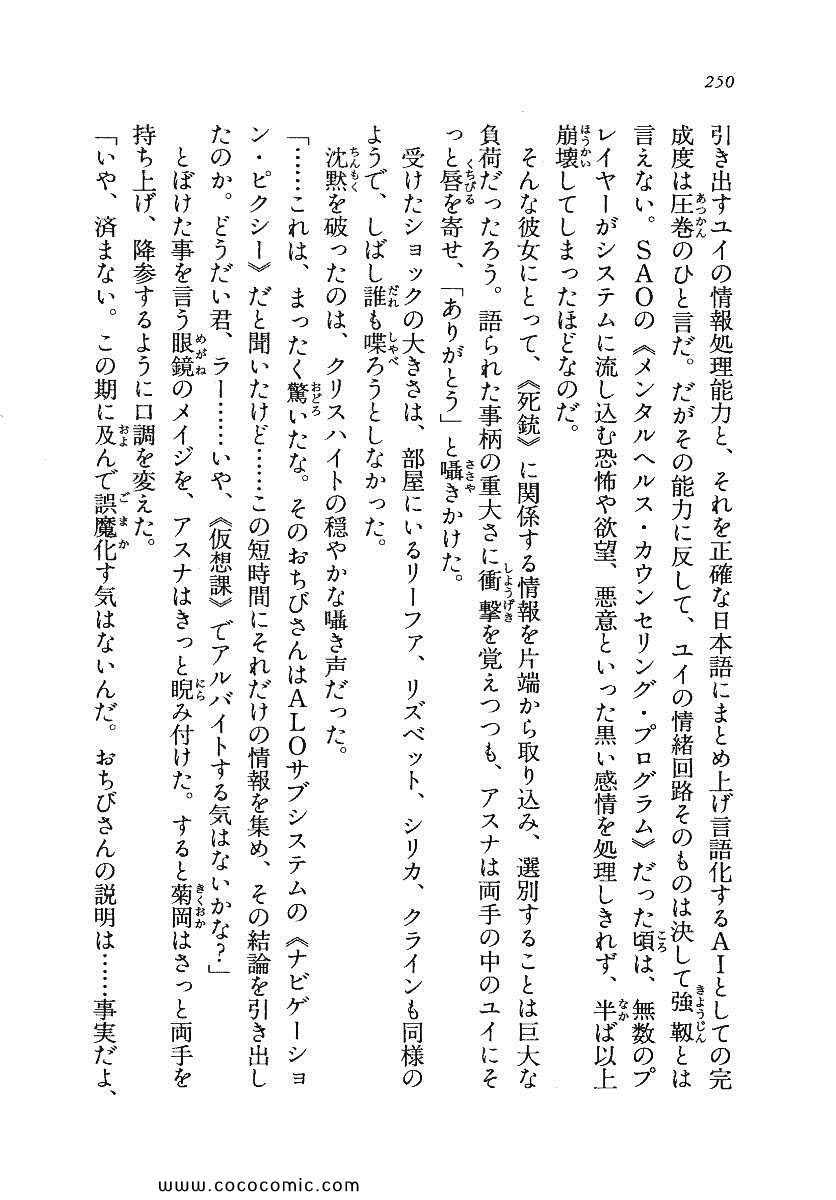 250
引き出すユイの情報処理能力と、それを正確な日本語にまとめ上げ言語化するAIとしての完
成度は圧巻のひと言だ。だがその能力に反して、ユイの情緒回路そのものは決して強靱とは
言えない。SAOの《メンタルヘルス・カウンセリング・プログラム》だった頃は、無数のプ
レイヤーがシステムに流し込む恐怖や欲望、悪意といった黒い感情を処理しきれず、半ば以上
崩壊してしまったほどなのだ。
そんな彼女にとって、《死銃》に関係する情報を片端から取り込み、選別することは巨大な
負荷だったろう。語られた事柄の重大さに衝撃を覚えつつも、アスナは両手の中のユイにそ
っと唇を寄せ、「ありがとう」と囁きかけた。
受けたショックの大きさは、部屋にいるリーファ、リズベット、シリカ、クラインも同様の
ようで、しばし誰も喋ろうとしなかった。
沈黙を破ったのは、クリスハイトの穏やかな囁き声だった。
「……これは、まったく驚いたな。そのおちびさんはALOサブシステムの《ナビゲーショ
ン・ピクシー》だと聞いたけど……この短時間にそれだけの情報を集め、その結論を引き出し
たのか。どうだい君、ラー……いや、《仮想課》でアルバイトする気はないかな?」
とぼけた事を言う眼鏡のメイジを、アスナはきっと睨み付けた。すると菊岡はさっと両手を
持ち上げ、降参するように口調を変えた。
「いや、済まない。この期に及んで誤魔化す気はないんだ。おちびさんの説明は……事実だよ、
www.cococomic.com